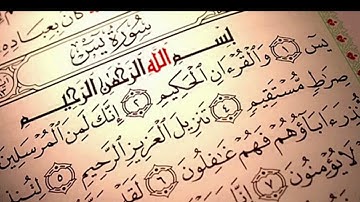 كان بعباده
سورة يس
بسم الله الرحمن الرحيم
يس ١ والقرءان الحكيم ٢ إنك لمن المرسلين
صراط مستقيم ٤ تنزيل العزيز الرحيم ٥ لتنذ
نذر ءاباؤهم فهم غفلون ٦ لقد
لا يؤمنون ٧ إنا